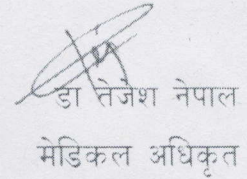 डा तेजेश नेपाल
मेडिकल अधिकृत